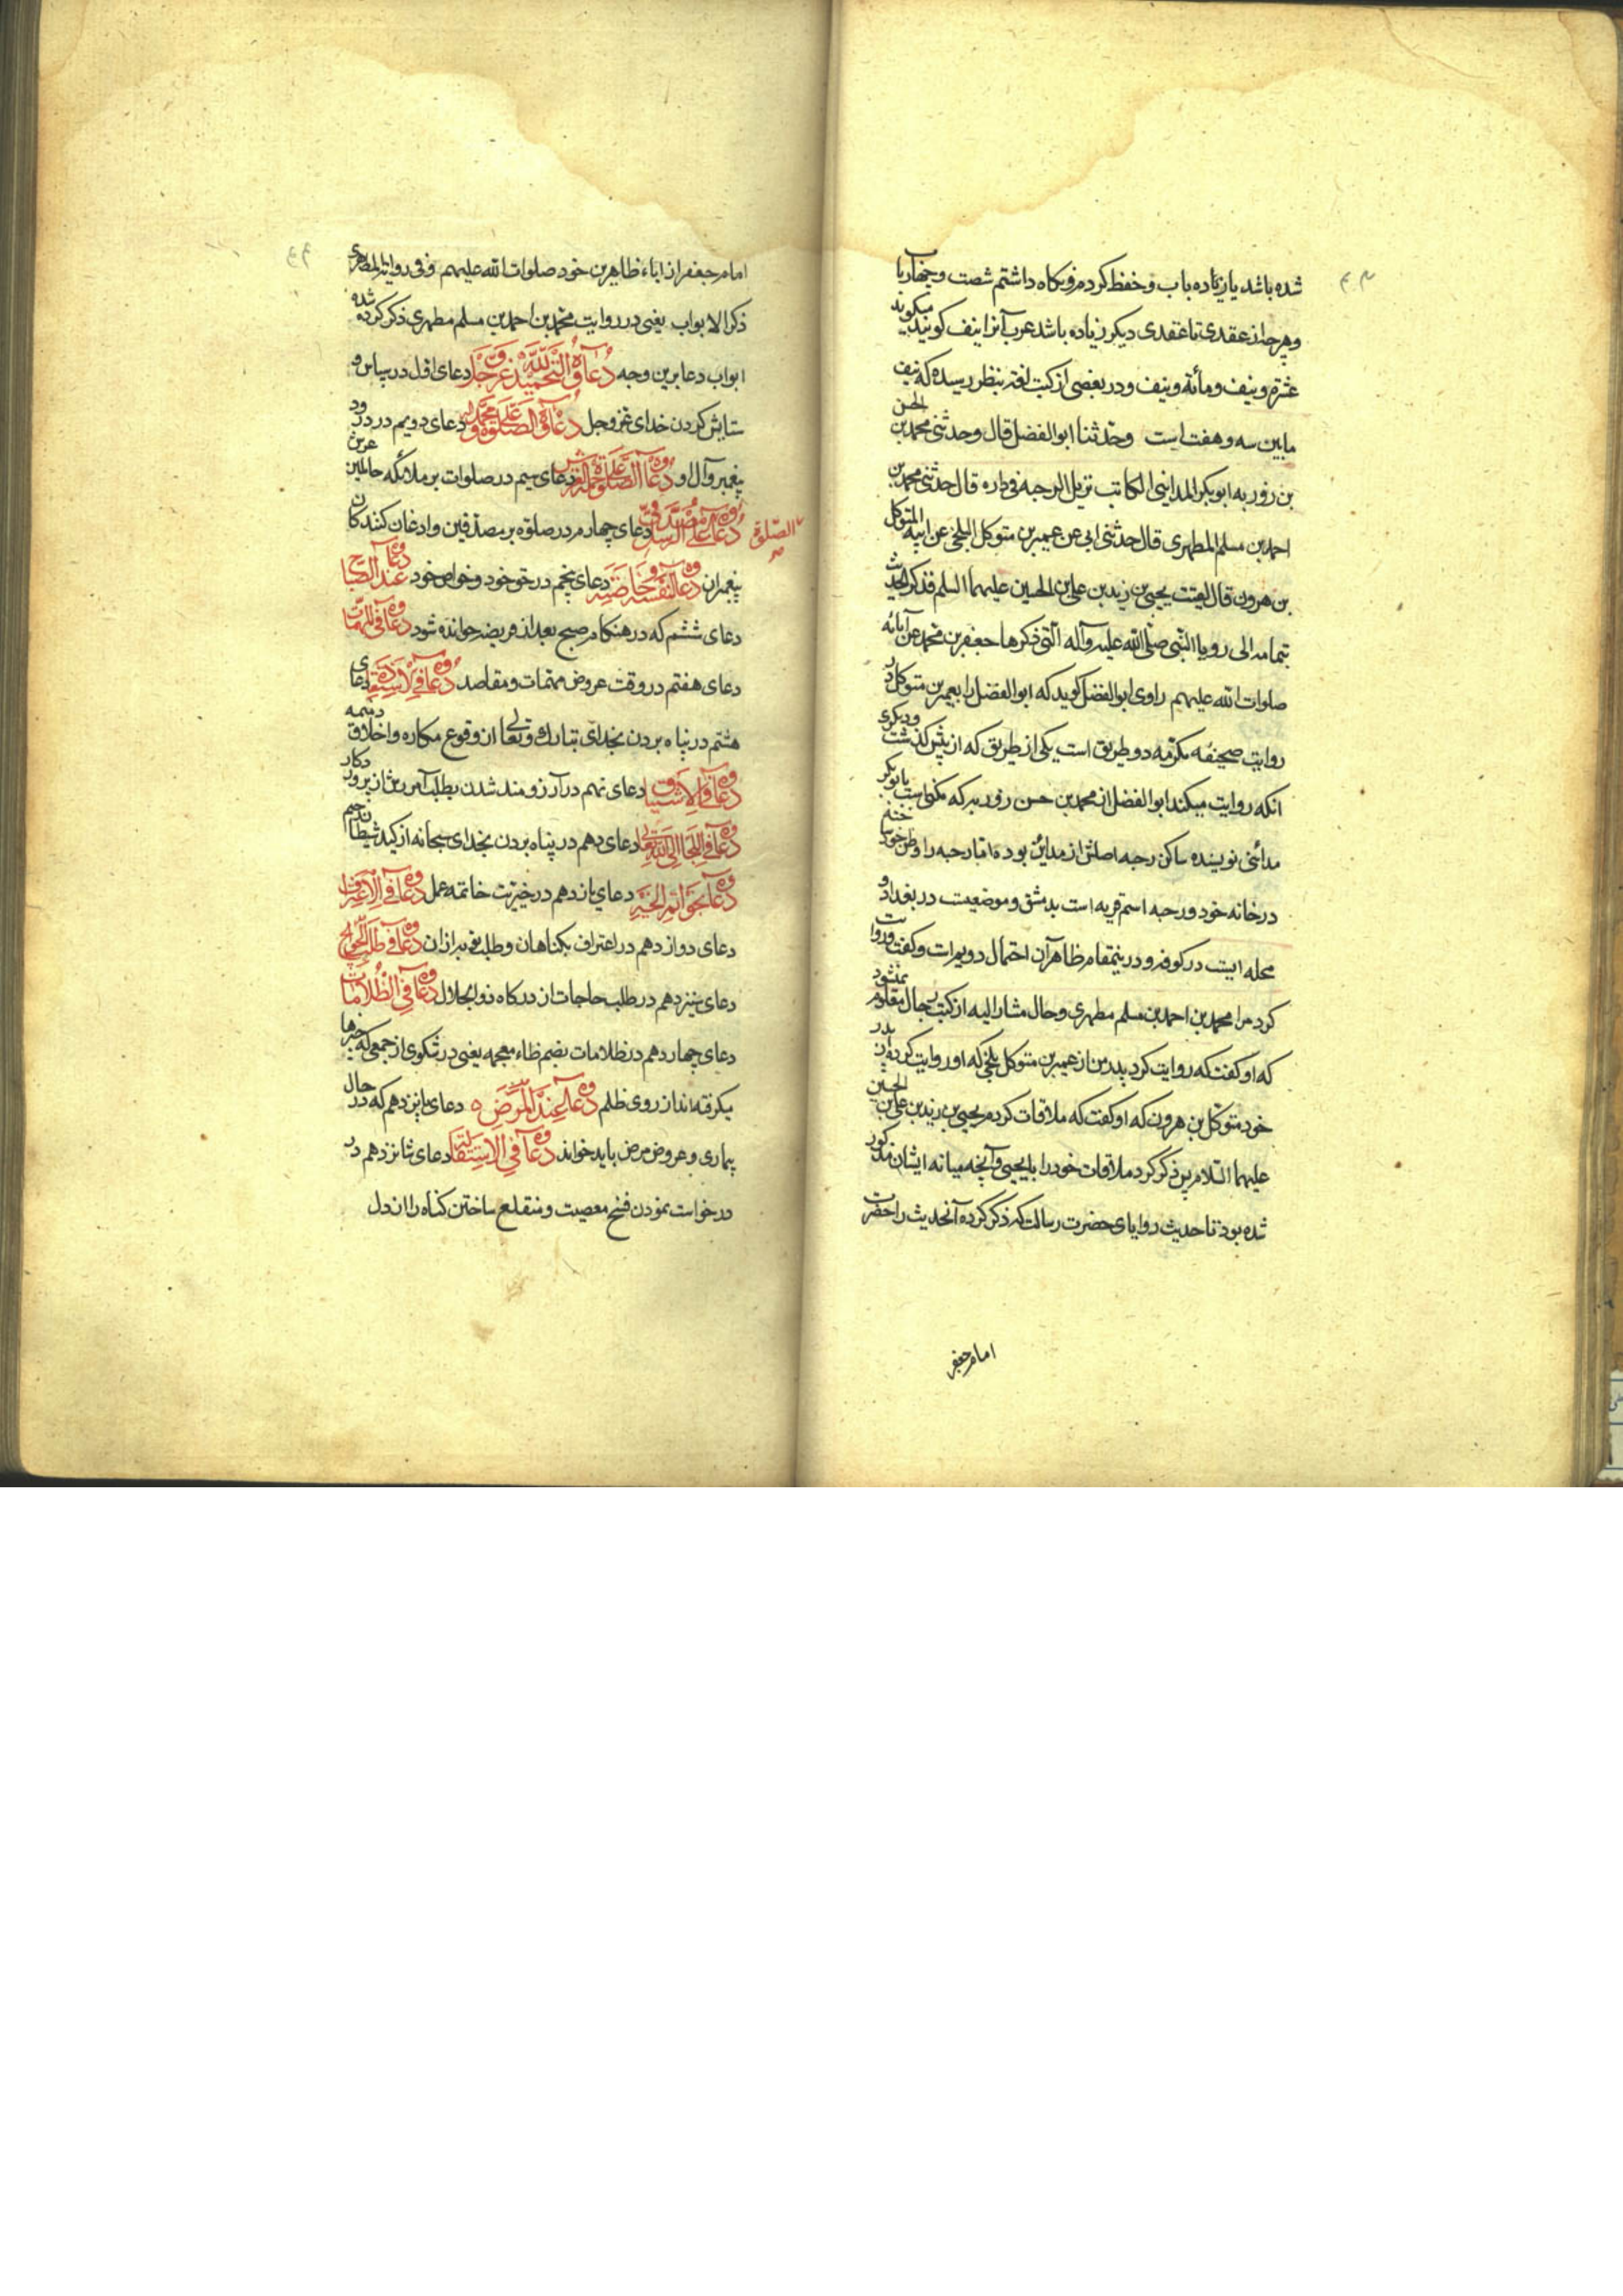 شده باشد یا زیاده باب و حفظ کردم و نگاه داشتم شصت و چهار باب
و هرچه از عقدی تا عقدی دیگر زیاده باشد عرب آنرا نیف گویند میگویند
عشرة و نیف و مائة و نیف و در بعضی از کتب لغة بنظر رسیده که نیف
مابین سه و هفت است وحدثنا ابوالفضل قال وحدثنی محمد بن الحسن
بن روزبه ابوبکر المداینی الکاتب نزیل الرحبه فی داره قال حدثنی محمد بن
احمد بن مسلم المطهری قال حدثنی ابی عن عمیر بن متوکل البلخی عن ابیه المتوکل
بن هرون قال لقیت یحیی بن زید بن علی بن الحسین علیهما السلم فذکر الحدیث
بتمامه الی رویا النبی صلی الله علیه وآله التی ذکرها جعفر بن محمد عن آبائه
صلوات الله علیهم راوی ابوالفضل گوید که ابوالفضل را بعمیر بن متوکل در
روایت صحیفه مکرمه دو طریق است یکی از طریق که از پیش گذشت و دیگری
آنکه روایت میکند ابوالفضل از محمد بن حسن روزبه که مکنی است بابوبکر
مدائنی نویسنده ساکن رحبه اصلش از مداین بوده اما رحبه را وطن خود ساخته
در خانه خود و رحبه اسم قریه است بدمشق و موضعیست در بغداد و
محله ایست در کوفه و در ینمقام ظاهر آن احتمال دویم است و گفت روایت
کرد مرا محمد بن احمد بن مسلم مطهری و حال مشار الیه از کتب رجال معلوم نمیشود
که او گفت که روایت کرد پدر من از عمیر بن متوکل بلخی که او روایت کرده از پدر
خود متوکل بن هرون که او گفت که ملاقات کردم یحیی بن زید بن علی بن الحسین
علیهما السلام پس ذکر کرد ملاقات خود را با یحیی و آنچه میانه ایشان مذکور
شده بود تا حدیث رویای حضرت رسالت که ذکر کرده آنحدیث را حضرت
امام جعفر
امام جعفر از اباء طاهرین خود صلوات الله علیهم و فی روایة المطهری
ذکر الابواب یعنی در روایت محمد بن احمد بن مسلم مطهری ذکر کرده شده
ابواب دعا برین وجه دعاؤه فی التحمید لله عز وجل دعای اول در سپاس و
ستایش کردن خدای عز وجل دعاؤه فی الصلوة علی محمد وآله دعای دویم در درود
پیغمبر و آل او دعاؤه فی الصلوة علی حملة العرش دعای سیم در صلوات بر ملائکه حاملین عرش
الصلوة
دعاؤه فی علی مصدقی الرسل دعای چهارم در صلوة بر مصدقین و اذعان کنندکان
پیغمبران دعاؤه لنفسه و خاصته دعای پنجم در حق خود و خواص خود دعاؤه عند الصباح
دعای ششم که در هنگام صبح بعد از فریضه خوانده شود دعاؤه فی المهمات
دعای هفتم در وقت عروض مهمات و مقاصد دعاؤه فی الاستعاذة دعای
هشتم در پناه بردن بخدای تبارک و تعالی از وقوع مکاره و اخلاق ذمیمه
دعاؤه فی الاشتیاق دعای نهم در آرزومند شدن بطلب آمرزش از پروردکار
دعاؤه فی اللجا الی الله تعالی دعای دهم در پناه بردن بخدای سبحانه از کید شیطان رجیم
دعاؤه بخواتم الخیر دعای یازدهم در خیریت خاتمه عمل دعاؤه فی الاعتراف
دعای دوازدهم در اعتراف بکناهان و طلب توبه از آن دعاؤه فی طلب الحوائج
دعای سیزدهم در طلب حاجات از درکاه ذوالجلال دعاؤه فی الظلامات
دعای چهاردهم در ظلامات بضم ظاء معجمه یعنی در شکوی از جمعی که چیزها
میکرفته اند از روی ظلم دعاؤه عند المرض دعای پانزدهم که در حال
بیماری و عروض مرض باید خواند دعاؤه فی الاستقالة دعای شانزدهم در
درخواست نمودن فسخ معصیت و منقلع ساختن کناه را از دل